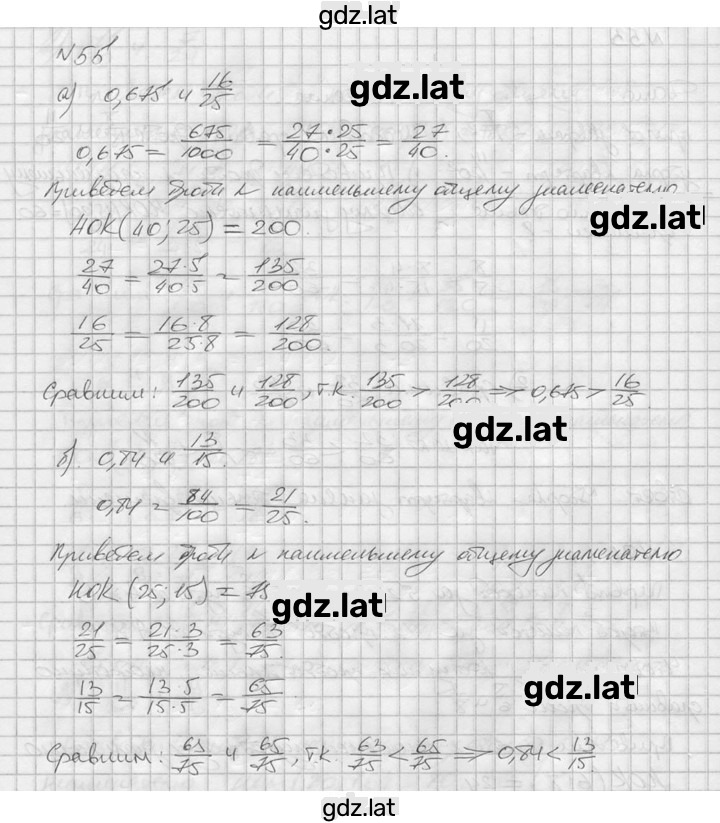 gdz.lat
№55
а) 0,675 и 16/25
gdz.lat
0,675 = 675/1000 = 27·25/40·25 = 27/40.
Приведем дроби к наименьшему общему знаменателю
gdz.lat
НОК(40; 25) = 200.
27/40 = 27·5/40·5 = 135/200
16/25 = 16·8/25·8 = 128/200.
Сравним: 135/200 и 128/200, т.к. 135/200 > 128/200 => 0,675 > 16/25.
gdz.lat
б). 0,84 и 13/15.
0,84 = 84/100 = 21/25.
Приведем дроби к наименьшему общему знаменателю
НОК (25; 15) = 75
gdz.lat
21/25 = 21·3/25·3 = 63/75.
13/15 = 13·5/15·5 = 65/75
gdz.lat
Сравним: 63/75 и 65/75, т.к. 63/75 < 65/75 => 0,84 < 13/15.
gdz.lat